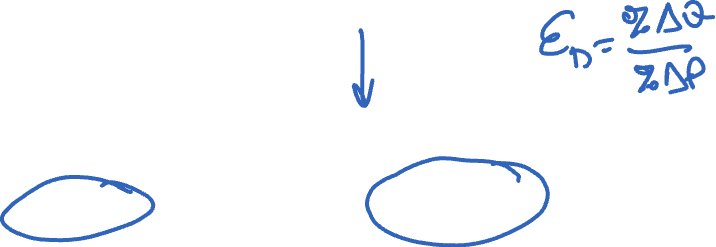 ε_D = %ΔQ / %ΔP